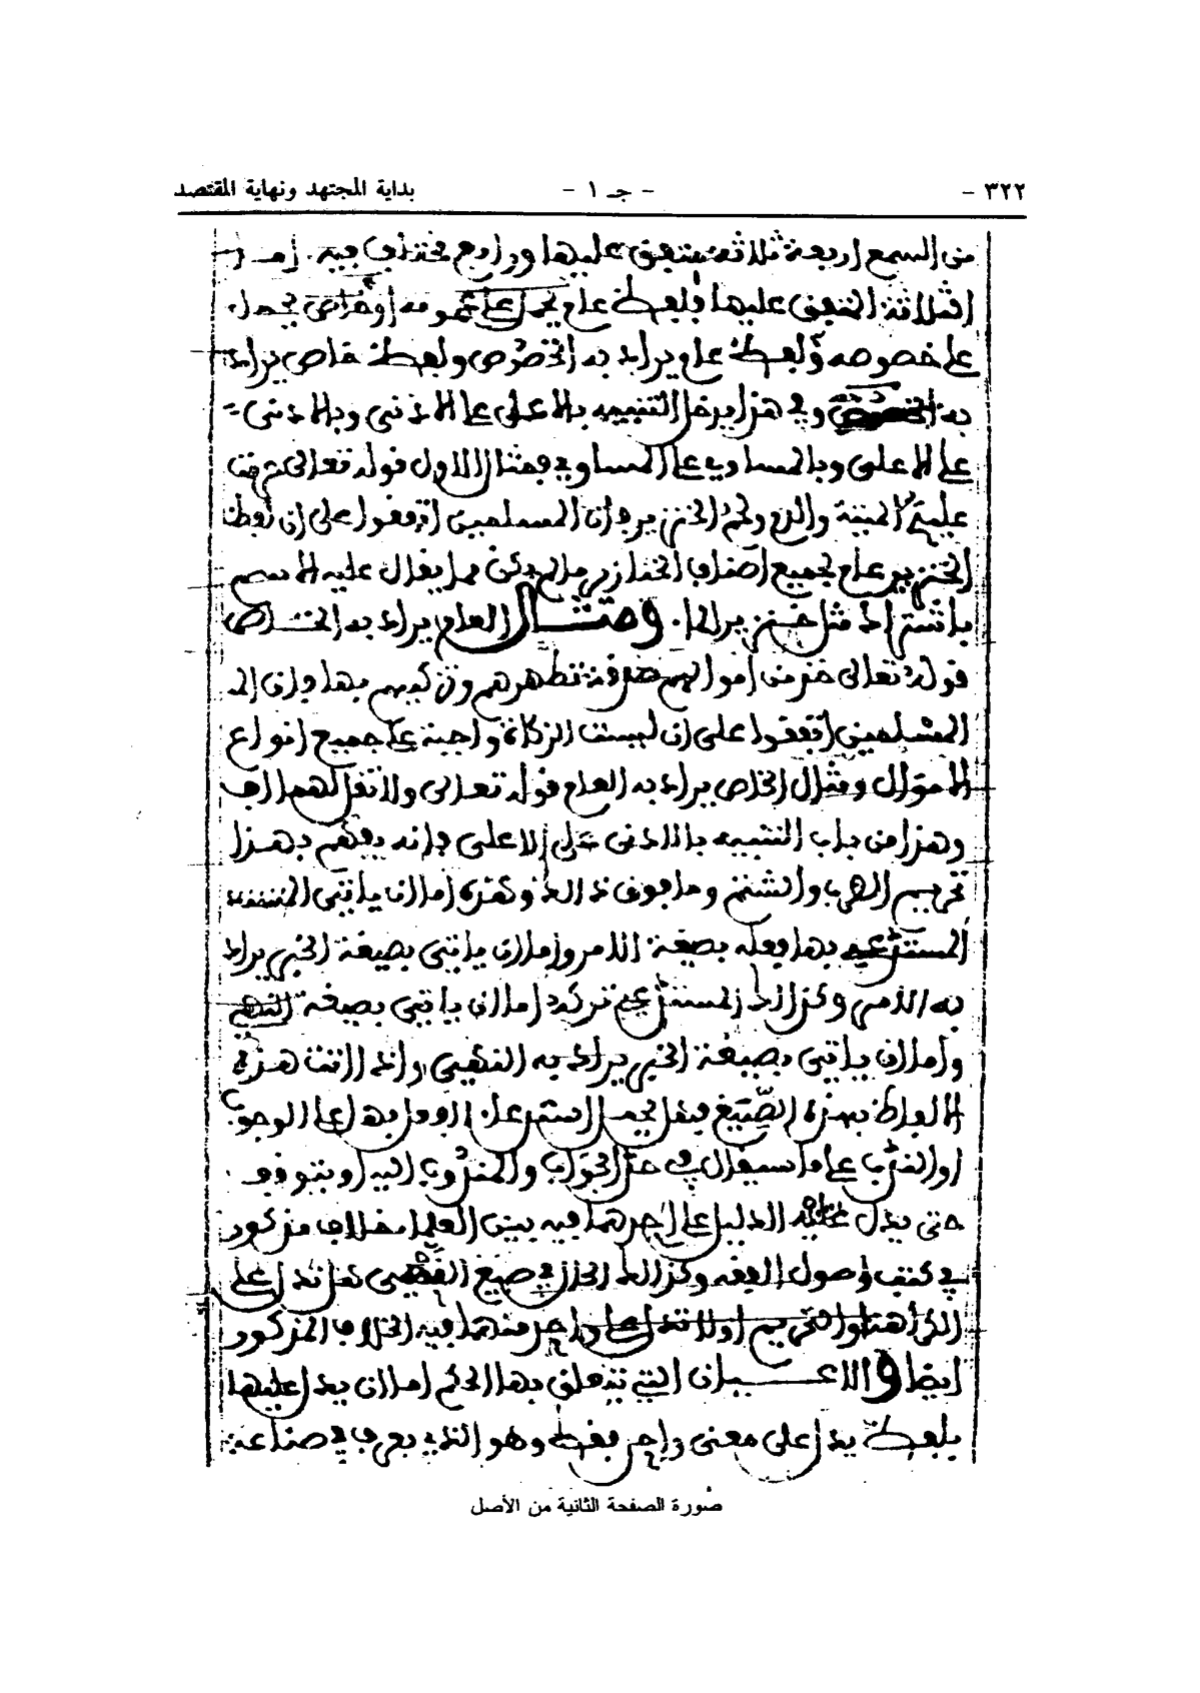 ٣٢٢ – – جـ ١ – بداية المجتهد ونهاية المقتصد
من السمع اربعة ثلاثة متفق عليها ورابع مختلف فيه . امـا
الثلاثة المتفق عليها فلفظ عام يحمل على عمومه او خاص يحمل
على خصوصه ولفظ عام يراد به الخصوص ولفظ خاص يراد
به وفي هذا يدخل التنبيه بالاعلى على الادنى وبالادنى
على الاعلى وبالمساوي على المساوي فمثال الاول قوله تعالى حرمت
عليكم الميتة والدم ولحم الخنزير فان المسلمين اتفقوا على ان لفظ
الخنزير عام لجميع اصناف الخنازير ما لم يكن مما يقال عليه الاسم
باشتراك مثل خنزير الماء . ومثـال العام يراد به الخـاص
قوله تعالى خذ من اموالهم صدقة تطهرهم وتزكيهم بها فان الـ
المسلمين اتفقوا على ان ليست الزكاة واجبة في جميع انواع
الاموال ومثال الخاص يراد به العام قوله تعالى ولا تقل لهما اف
وهذا من باب التنبيه بالادنى على الاعلى فانه يفهم بهـذا
تحريم الضرب والشتم وما فوق ذالك وهذه اما ان ياتي المستد
المستدعى بها فعله بصيغة الامر واما ان ياتي بصيغة الخبر يراد
به الامر وكذالك المستدعى تركه اما ان ياتي بصيغة النهي
واما ان ياتي بصيغة الخبر يراد به النهي واذا اتت هذه
الالفاظ بهذه الصيغ فهل يحمل استدعاء الفعل بها على الوجوب
او الندب على ما سيقال في حد الواجب والمندوب اليه او يتوقف
حتى يدل الدليل على احدهما فيه بين العلماء خلاف مذكور
في كتب اصول الفقه وكذالك الحال في صيغ النهي هل تدل على
الكراهة او التحريم او لا تدل على واحد منهما فيه الخلاف المذكور
ايضا والاعـيان التي يتعلق بها الحكم اما ان يدل عليها
بلفظ يدل على معنى واحد فقط وهو الذي يعرف في صناعة
صورة الصفحة الثانية من الأصل